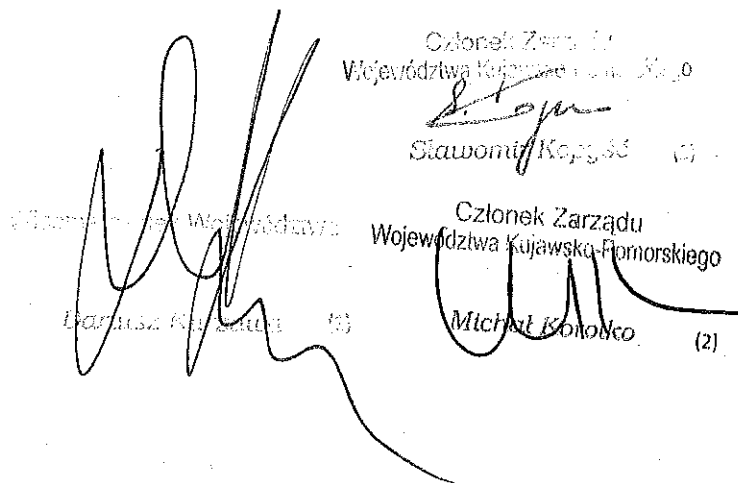 Członek Zarządu
Województwa Kujawsko-Pomorskiego
Sławomir Kopyść
Wicemarszałek Województwa
Dariusz Kurzawa
Członek Zarządu
Województwa Kujawsko-Pomorskiego
Michał Korolko (2)